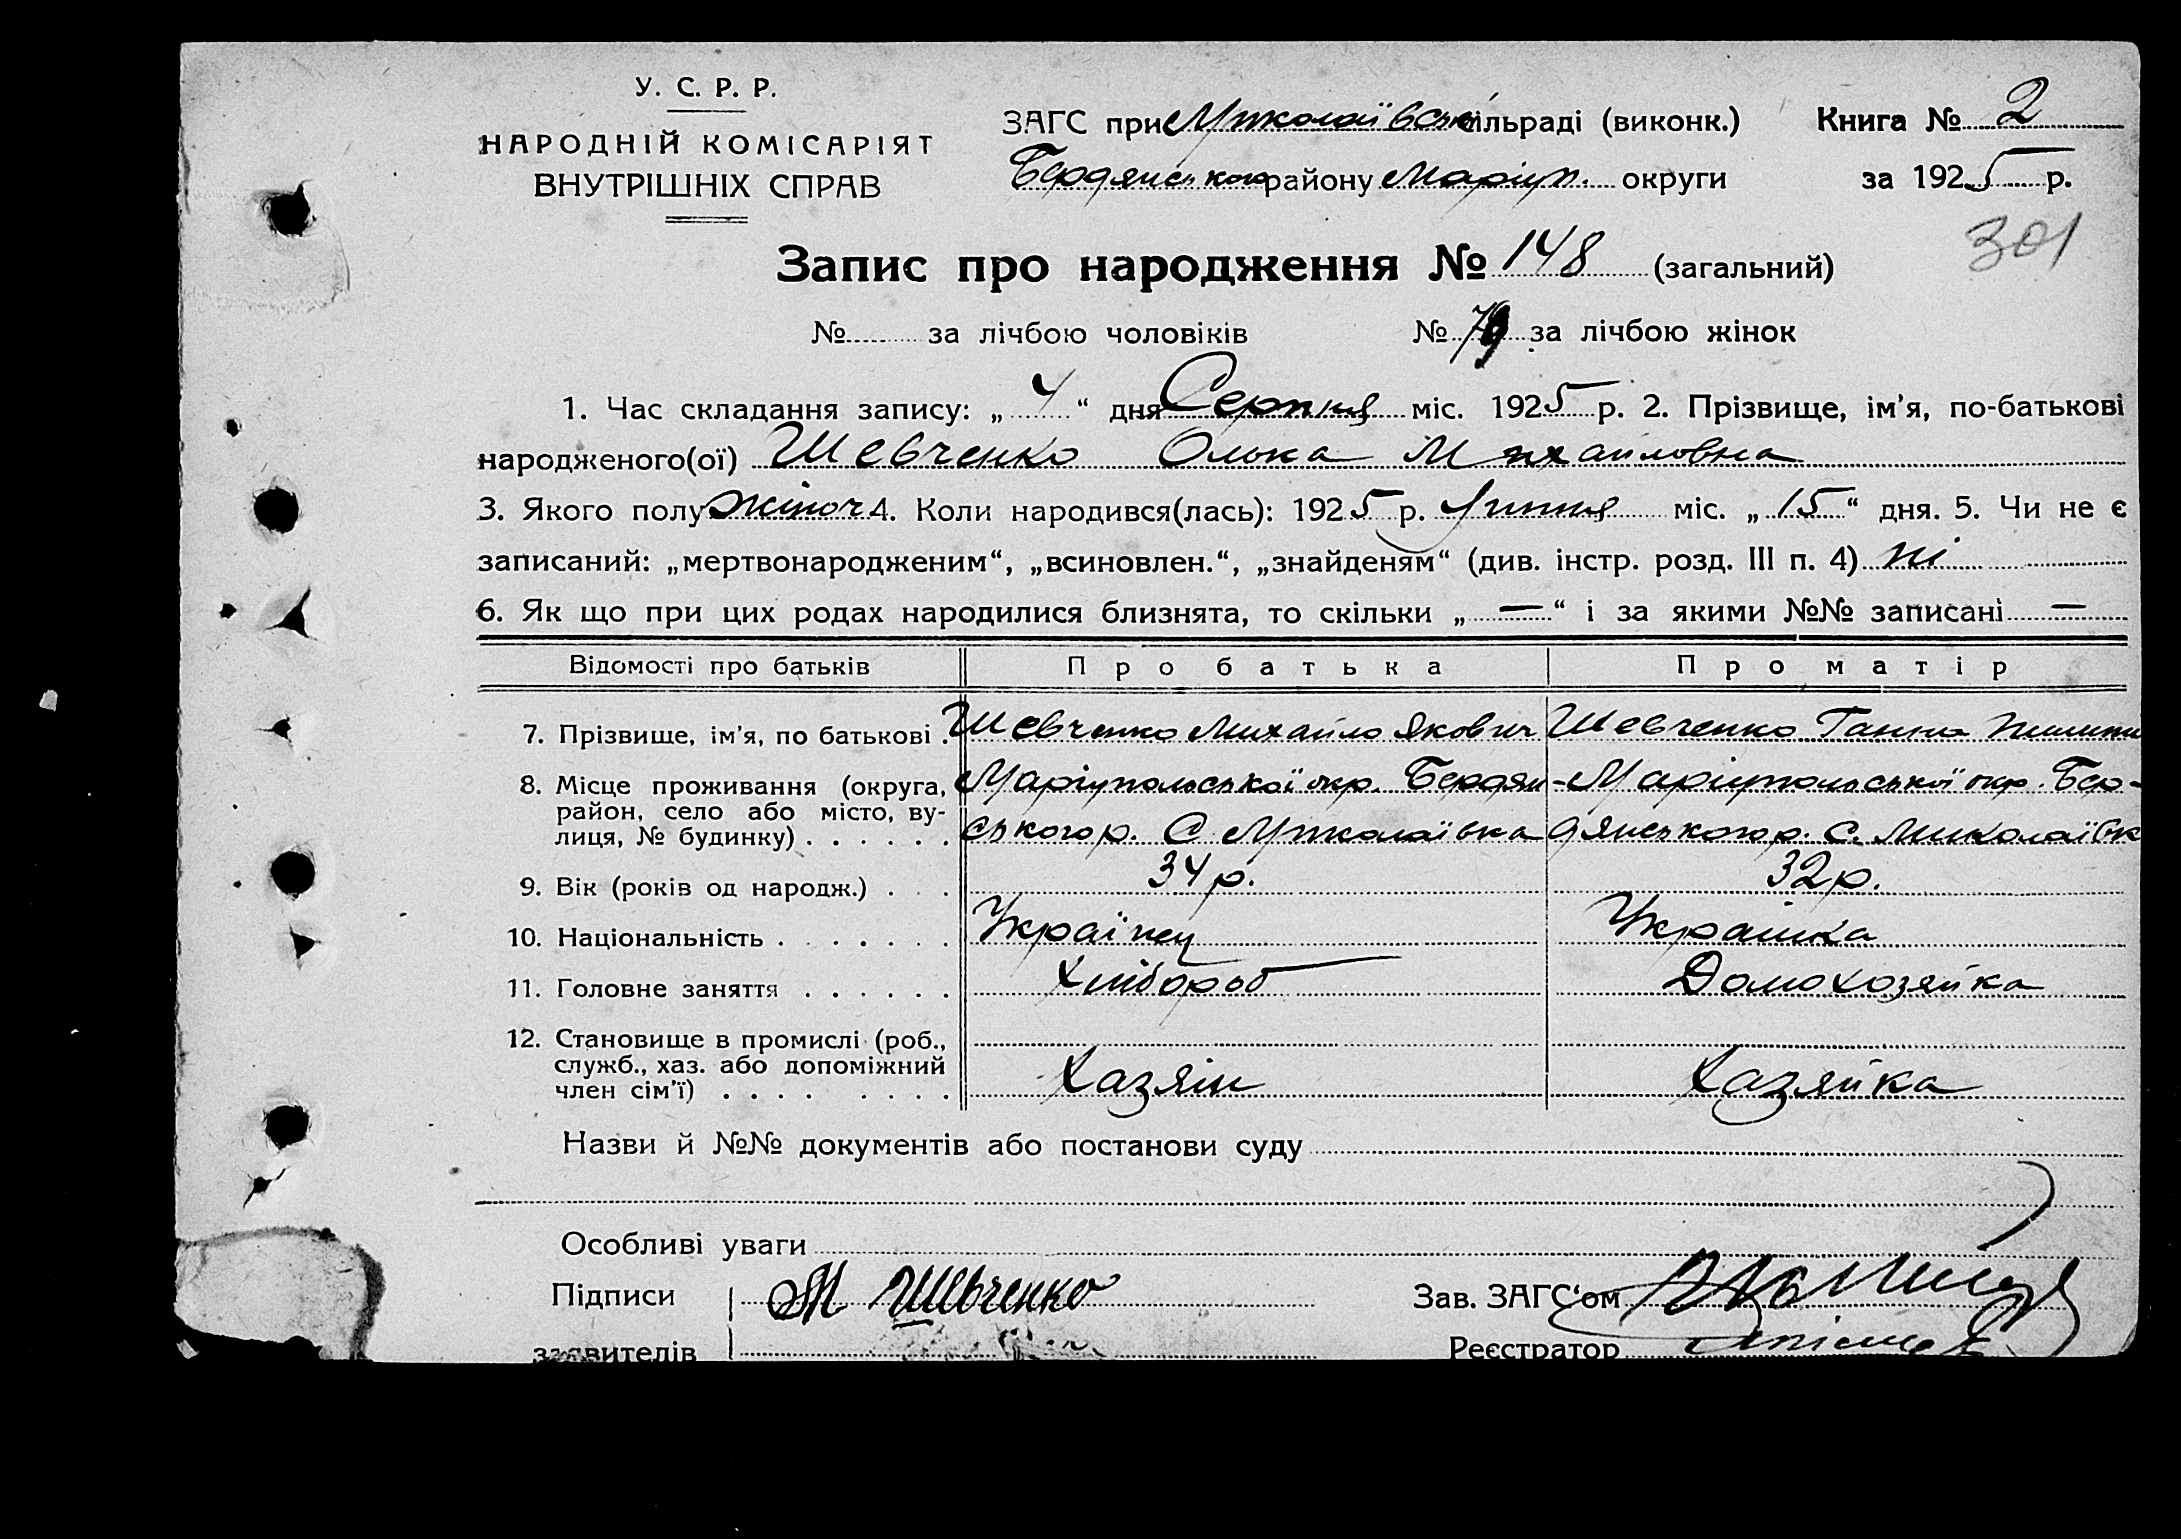 У. С. Р. Р.
НАРОДНІЙ КОМІСАРІЯТ
ВНУТРІШНІХ СПРАВ
ЗАГС при Миколаївськ сільраді (виконк.) Книга № 2
Бердянського району Маріуп. округи за 1925 р.
301
Запис про народження № 148 (загальний)
№ за лічбою чоловіків № 79 за лічбою жінок
1. Час складання запису: „ 4 “ дня Серпня міс. 1925 р. 2. Прізвище, ім’я, по-батькові
народженого(ої) Шевченко Олька Михайловна
3. Якого полу жіноч 4. Коли народився(лась): 1925 р. Липня міс. „ 15 “ дня. 5. Чи не є
записаний: „мертвонародженим“, „всиновлен.“, „знайденям“ (див. інстр. розд. III п. 4) ні
6. Як що при цих родах народилися близнята, то скільки „ — “ і за якими №№ записані —
Відомості про батьків Про батька Про матір
7. Прізвище, ім’я, по батькові . Шевченко Михайло Якович Шевченко Ганна
8. Місце проживання (округа, район, село або місто, ву-лиця, № будинку) . . . . . . Маріупольської окр. Бердян- Маріупольської окр. Бер-
ського р. С Миколаївка дянського р. с. Миколаївк
9. Вік (років од народж.) . . . 34 р. 32 р.
10. Національність . . . . . . . Українец Українка
11. Головне заняття . . . . . . Хлібороб Домохозяйка
12. Становище в промислі (роб., служб., хаз. або допоміжний
член сім’ї) . . . . . . . . Хазяін Хазяйка
Назви й №№ документів або постанови суду
Особливі уваги
Підписи М Шевченко Зав. ЗАГС‘ом
заявителів Реєстратор